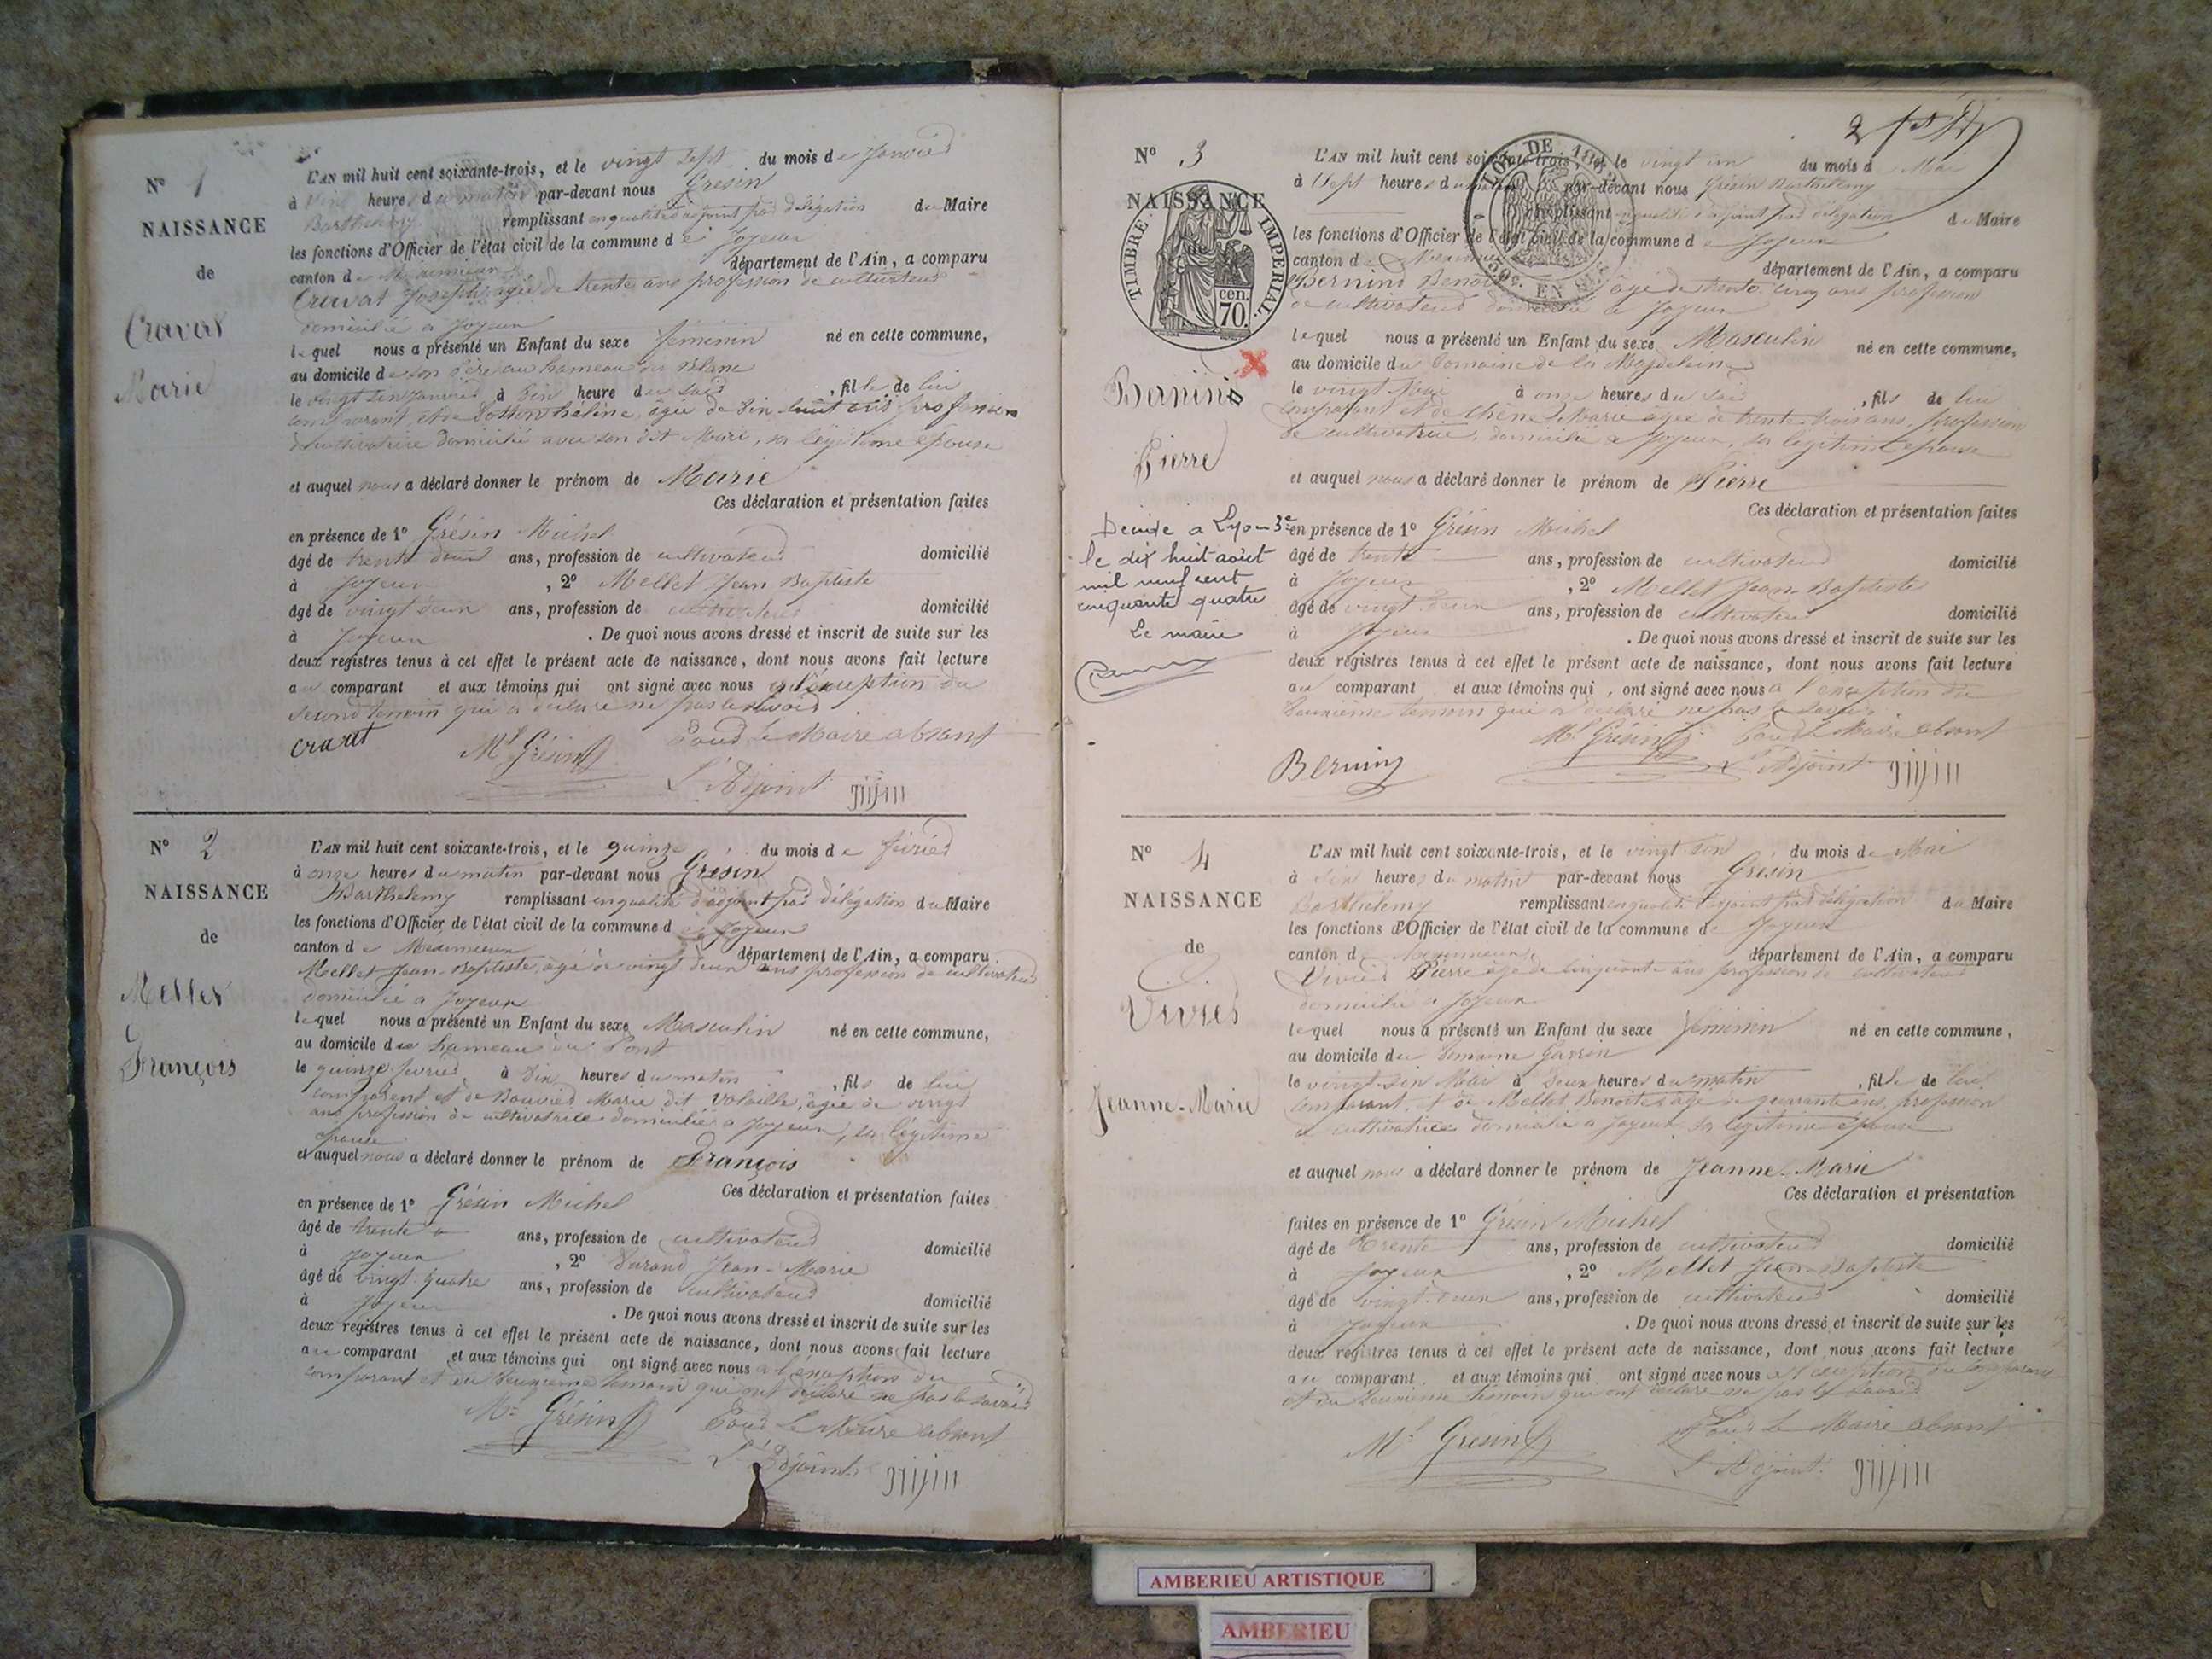 N° 1
NAISSANCE
de
Cravat
Marie
L'AN mil huit cent soixante-trois, et le vingt sept du mois de Janvier
à heure du matin par-devant nous Grésin
Barthelemy remplissant en qualité d'adjoint par délégation du Maire
les fonctions d'Officier de l'état civil de la commune de Joyeux
canton de Meximieux département de l'Ain, a comparu
Cravat Joseph, âgé de trente ans profession de cultivateur
domicilié à Joyeux
lequel nous a présenté un Enfant du sexe féminin né en cette commune,
au domicile de son père au hameau du Blanc
le vingt six Janvier à Six heure du soir, fille de lui
comparant et de Hélène, âgée de huit ans profession
de cultivatrice domicilié avec son dit Mari, sa légitime épouse
et auquel nous a déclaré donner le prénom de Marie
Ces déclaration et présentation faites
en présence de 1° Grésin Michel
âgé de trente ans, profession de cultivateur domicilié
à Joyeux, 2° Mellet Jean Baptiste
âgé de vingt deux ans, profession de cultivateur domicilié
à Joyeux. De quoi nous avons dressé et inscrit de suite sur les
deux registres tenus à cet effet le présent acte de naissance, dont nous avons fait lecture
au comparant et aux témoins qui ont signé avec nous a l'exception du
second temoin qui a déclaré ne pas le savoir
cravat Ml Grésin Pour le Maire absent
L'Adjoint grésin
N° 2
NAISSANCE
de
Mellet
François
L'AN mil huit cent soixante-trois, et le quinze du mois de février
à onze heures du matin par-devant nous Grésin
Barthelemy remplissant en qualité d'adjoint par délégation du Maire
les fonctions d'Officier de l'état civil de la commune de Joyeux
canton de Meximieux département de l'Ain, a comparu
Mellet Jean-Baptiste, âgé de vingt deux ans profession de cultivateur
domicilié a Joyeux
lequel nous a présenté un Enfant du sexe Masculin né en cette commune,
au domicile du hameau du Pont
le quinze février à Six heures du matin, fils de lui
comparant et de Bouvier Marie dit Volaille, âgée de vingt
ans profession de cultivatrice domicilié a Joyeux, sa légitime
épouse
et auquel nous a déclaré donner le prénom de François
Ces déclaration et présentation faites
en présence de 1° Grésin Michel
âgé de trente ans, profession de cultivateur domicilié
à Joyeux, 2° Durand Jean-Marie
âgé de vingt-quatre ans, profession de cultivateur domicilié
à Joyeux. De quoi nous avons dressé et inscrit de suite sur les
deux registres tenus à cet effet le présent acte de naissance, dont nous avons fait lecture
au comparant et aux témoins qui ont signé avec nous a l'exception du
comparant et du deuxième temoin qui ont déclaré ne pas le savoir
Ml Grésin Pour le Maire absent
L'Adjoint grésin
2
N° 3
NAISSANCE
TIMBRE IMPERIAL
70 cen.
LOI DE
50c. EN
Bernin
Pierre
Décédé a Lyon 3e
le dix huit août
mil neuf cent
cinquante quatre
Le maire
L'AN mil huit cent soixante-trois, et le vingt un du mois de Mai
à Sept heures du matin par-devant nous Grésin Barthelemy
remplissant en qualité d'adjoint par délégation du Maire
les fonctions d'Officier de l'état civil de la commune de Joyeux
canton de Meximieux département de l'Ain, a comparu
Bernin Benoit âgé de trente cinq ans profession
de cultivateur domicilié a Joyeux
lequel nous a présenté un Enfant du sexe Masculin né en cette commune,
au domicile du Domaine de la Magdeleine
le vingt Mai à onze heures du soir, fils de lui
comparant et de Chêne Marie âgée de trente trois ans, profession
de cultivatrice, domicilié a Joyeux, sa légitime épouse
et auquel nous a déclaré donner le prénom de Pierre
Ces déclaration et présentation faites
en présence de 1° Grésin Michel
âgé de trente ans, profession de cultivateur domicilié
à Joyeux, 2° Mellet Jean-Baptiste
âgé de vingt-deux ans, profession de cultivateur domicilié
à Joyeux. De quoi nous avons dressé et inscrit de suite sur les
deux registres tenus à cet effet le présent acte de naissance, dont nous avons fait lecture
au comparant et aux témoins qui, ont signé avec nous a l'exception du
deuxième temoin qui a déclaré ne pas le savoir
Ml Grésin Pour le Maire absent
Bernin L'Adjoint grésin
N° 4
NAISSANCE
de
Vivier
Jeanne-Marie
L'AN mil huit cent soixante-trois, et le vingt six du mois de Mai
à Six heures du matin par-devant nous Grésin
Barthelemy remplissant en qualité d'adjoint par délégation du Maire
les fonctions d'Officier de l'état civil de la commune de Joyeux
canton de Meximieux département de l'Ain, a comparu
Vivier Pierre âgé de cinquante ans profession de cultivateur
domicilié a Joyeux
lequel nous a présenté un Enfant du sexe féminin né en cette commune,
au domicile du Domaine
le vingt-six Mai à Deux heures du matin, fille de lui
comparant, et de Mellet Benoite âgé de quarante ans, profession
de cultivatrice domicilié a Joyeux sa légitime épouse
et auquel nous a déclaré donner le prénom de Jeanne-Marie
Ces déclaration et présentation
faites en présence de 1° Grésin Michel
âgé de trente ans, profession de cultivateur domicilié
à Joyeux, 2° Mellet Jean-Baptiste
âgé de vingt-deux ans, profession de cultivateur domicilié
à Joyeux. De quoi nous avons dressé et inscrit de suite sur les
deux registres tenus à cet effet le présent acte de naissance, dont nous avons fait lecture
au comparant et aux témoins qui ont signé avec nous a l'exception du comparant
et du deuxième témoin qui ont déclaré ne pas le savoir
Ml Grésin Pour le Maire absent
L'Adjoint grésin
AMBERIEU ARTISTIQUE
AMBERIEU